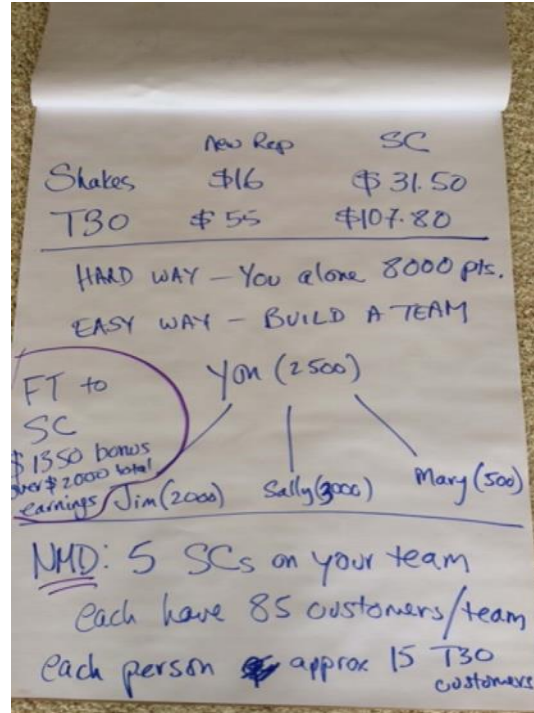 New Rep SC
Shakes $16 $31.50
T30 $55 $107.80
HARD WAY - You alone 8000 pts.
EASY WAY - BUILD A TEAM
You (2500)
FT to
SC
$1350 bonus
over $2000 total
earnings
Jim (2000) Sally (3000) Mary (500)
NMD: 5 SCs on your team
each have 85 customers/team
each person approx 15 T30
customers